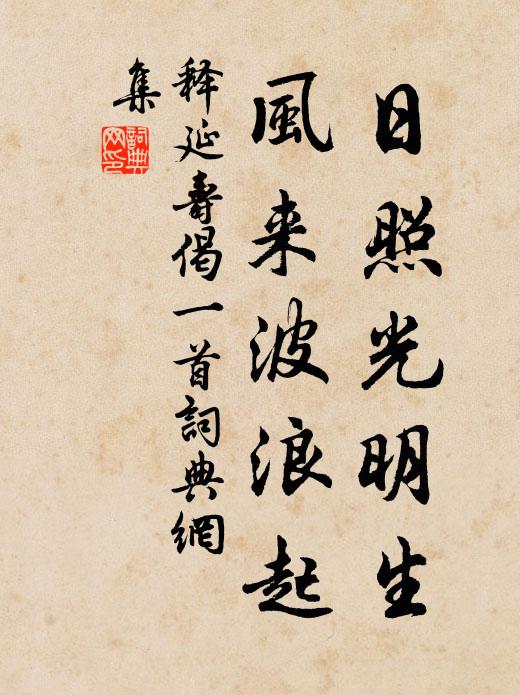 日照光明生
風来波浪起
释延壽偈一首詞典網
集
詞典网印